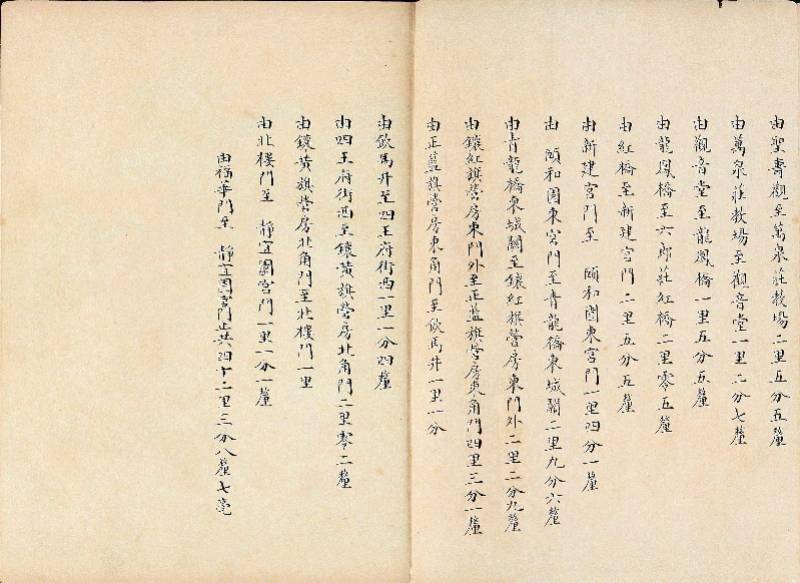 由聖壽觀至萬泉莊教場二里五分五釐
由萬泉莊教場至觀音堂一里二分七釐
由觀音堂至龍鳳橋一里五分五釐
由龍鳳橋至六郎莊紅橋二里零五釐
由紅橋至新建宮門二里五分五釐
由新建宮門至 頤和園東宮門一里四分一釐
由 頤和園東宮門至青龍橋東城關二里九分六釐
由青龍橋東城關至鑲紅旗營房東門外二里二分九釐
由鑲紅旗營房東門外至正藍旗營房東角門四里三分一釐
由正藍旗營房東角門至飲馬井一里一分
由飲馬井至四王府街西一里一分四釐
由四王府街西至鑲黃旗營房北角門二里零二釐
由鑲黃旗營房北角門至北樓門一里
由北樓門至 靜宜園宮門一里一分一釐
由福華門至 靜宜園宮門止共四十二里三分八釐七毫